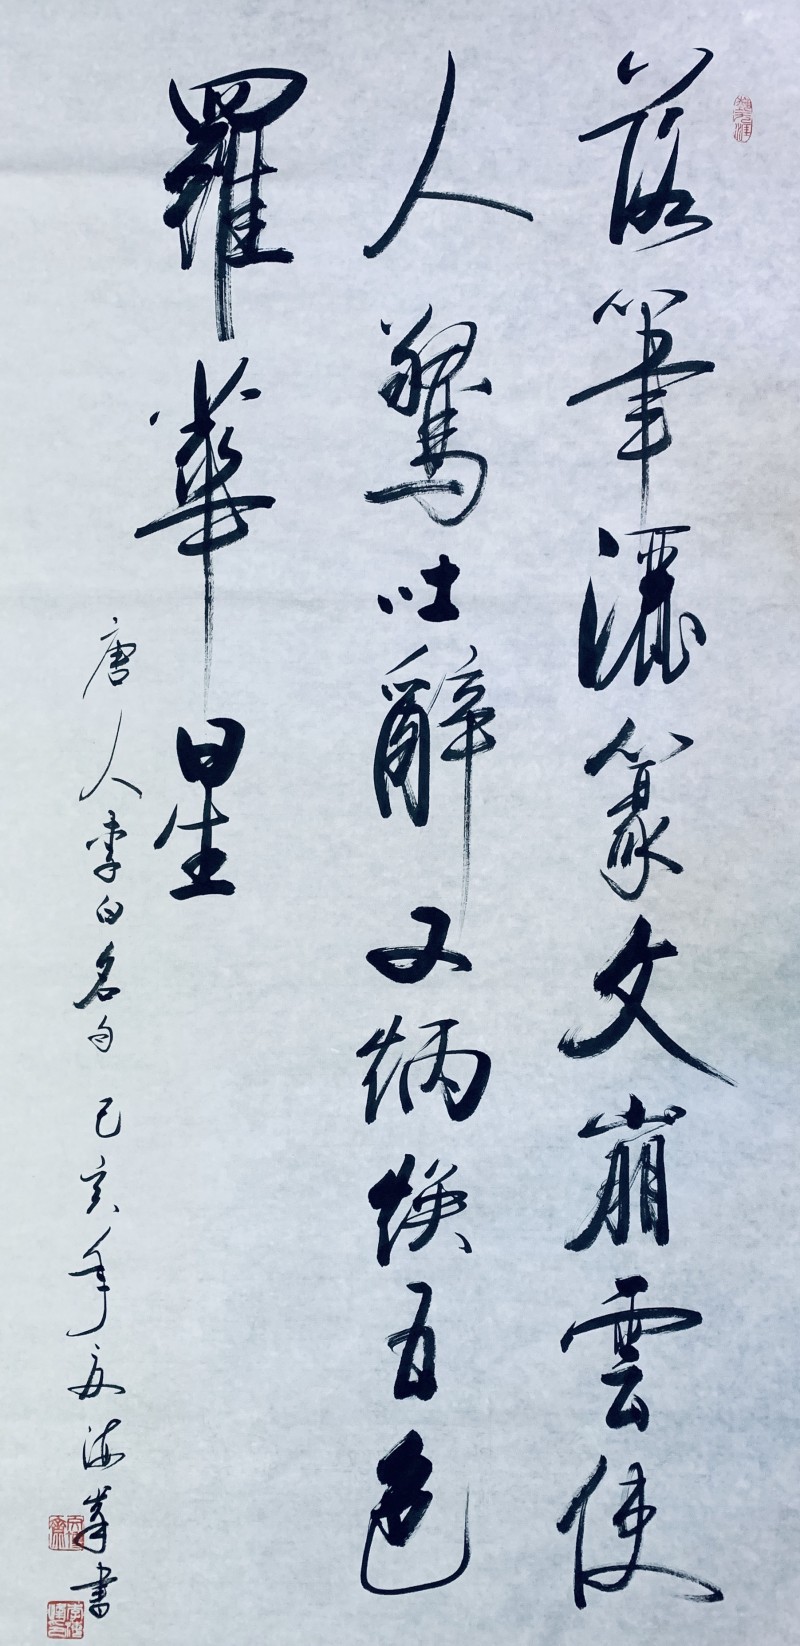 落筆灑篆文崩雲使
人驚吐辭又炳煥五色
羅華星
唐人李白名句 己亥年夏海峯書